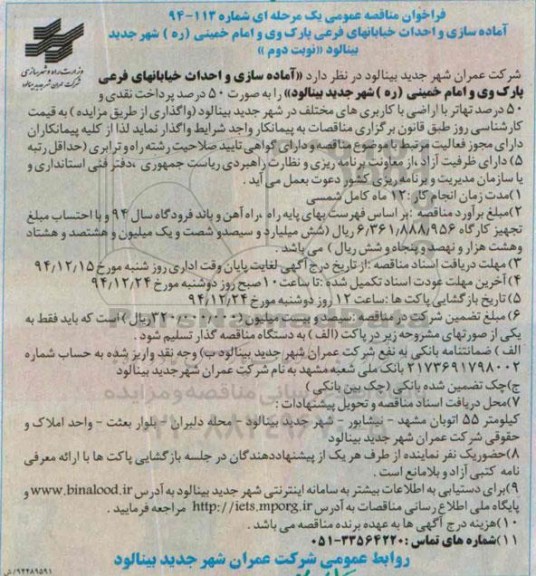 فراخوان مناقصه عمومی یک مرحله ای شماره ۱۱۳-۹۴
آماده سازی و احداث خیابانهای فرعی پارک وی و امام خمینی (ره) شهر جدید
بینالود «نوبت دوم»
وزارت راه و شهرسازی
شرکت عمران شهر جدید بینالود
شرکت عمران شهر جدید بینالود در نظر دارد «آماده سازی و احداث خیابانهای فرعی
پارک وی و امام خمینی (ره) شهر جدید بینالود» را به صورت ۵۰ درصد پرداخت نقدی و
۵۰ درصد تهاتر با اراضی با کاربری های مختلف در شهر جدید بینالود (واگذاری از طریق مزایده) به قیمت
کارشناسی روز طبق قانون برگزاری مناقصات به پیمانکار واجد شرایط واگذار نماید لذا از کلیه پیمانکاران
دارای مجوز فعالیت مرتبط با موضوع مناقصه و دارای گواهی تایید صلاحیت رشته راه و ترابری (حداقل رتبه
۵) دارای ظرفیت آزاد ،از معاونت برنامه ریزی و نظارت راهبردی ریاست جمهوری ،دفتر فنی استانداری و
یا سازمان مدیریت و برنامه ریزی کشور دعوت بعمل می آید .
۱)مدت زمان انجام کار :۱۲ ماه کامل شمسی
۲)مبلغ برآورد مناقصه :بر اساس فهرست بهای پایه راه ،راه آهن و باند فرودگاه سال ۹۴ و با احتساب مبلغ
تجهیز کارگاه ۶/۳۶۱/۸۸۸/۹۵۶ ریال (شش میلیارد و سیصدو شصت و یک میلیون و هشتصد و هشتاد
وهشت هزار و نهصد و پنجاه و شش ریال ) می باشد .
۳) مهلت دریافت اسناد مناقصه :از تاریخ درج آگهی لغایت پایان وقت اداری روز شنبه مورخ ۹۴/۱۲/۱۵
۴) آخرین مهلت عودت اسناد تکمیل شده :تا ساعت ۱۰ صبح روز دوشنبه مورخ ۹۴/۱۲/۲۴
۵) تاریخ بازگشایی پاکت ها :ساعت ۱۲ روز دوشنبه مورخ ۹۴/۱۲/۲۴
۶) مبلغ تضمین شرکت در مناقصه :سیصد و بیست میلیون (۳۲۰/۰۰۰/۰۰۰ ریال) است که باید فقط به
یکی از صورتهای مشروحه زیر در پاکت (الف) به دستگاه مناقصه گذار تسلیم شود .
الف ) ضمانتنامه بانکی به نفع شرکت عمران شهر جدید بینالود ب) وجه نقد واریز شده به حساب شماره
۲۱۷۳۶۹۱۷۹۸۰۰۲ بانک ملی شعبه مشهد به نام شرکت عمران شهر جدید بینالود
ج)چک تضمین شده بانکی (چک بین بانکی )
۷)محل دریافت اسناد مناقصه و تحویل پیشنهادات :
کیلومتر ۵۵ اتوبان مشهد - نیشابور - شهر جدید بینالود - محله دلیران - بلوار بعثت - واحد املاک و
حقوقی شرکت عمران شهر جدید بینالود
۸)حضوریک نفر نماینده از طرف هر یک از پیشنهاددهندگان در جلسه بازگشایی پاکت ها با ارائه معرفی
نامه کتبی آزاد و بلامانع است .
۹)برای دستیابی به اطلاعات بیشتر به سامانه اینترنتی شهر جدید بینالود به آدرس www.binalood.ir و
پایگاه ملی اطلاع رسانی مناقصات به آدرس http://iets.mporg.ir مراجعه فرمایید .
۱۰)هزینه درج آگهی ها به عهده برنده مناقصه می باشد .
۱۱)شماره های تماس :۳۳۵۶۴۲۲۰-۰۵۱
روابط عمومی شرکت عمران شهر جدید بینالود
۹۴۴۸۹۵۹۱/ش